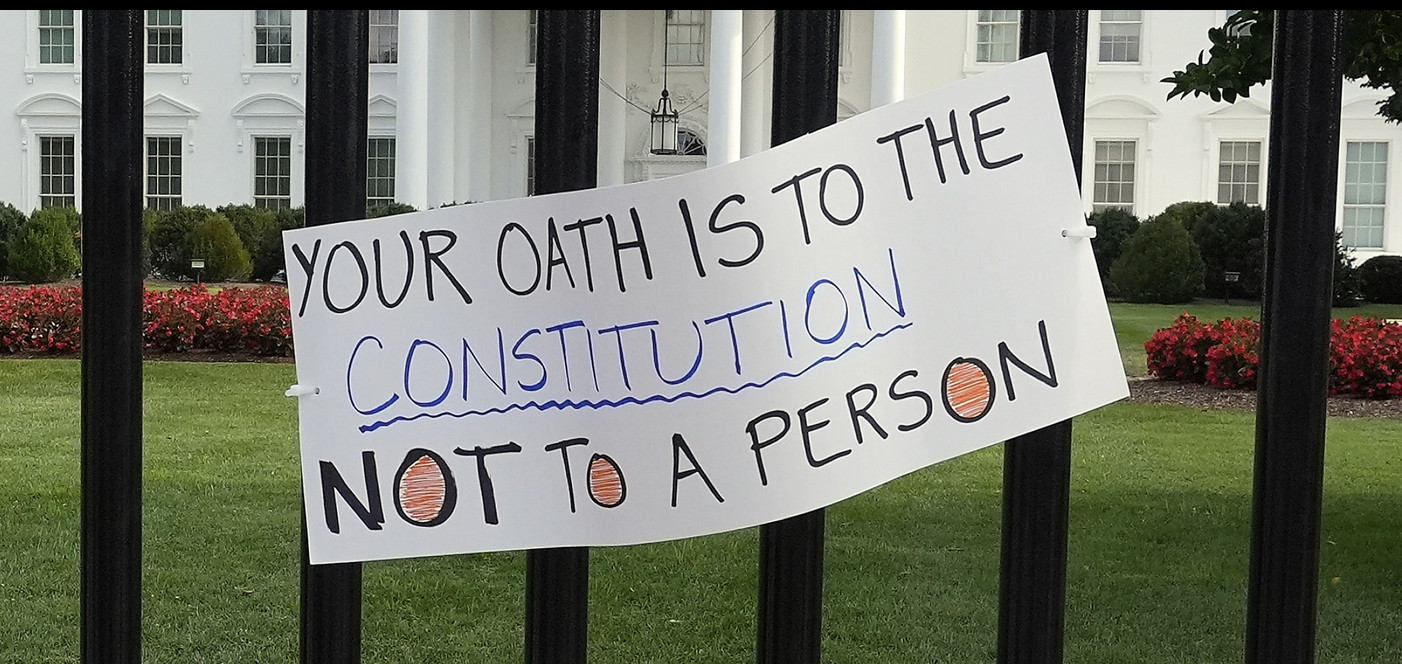 YOUR OATH IS TO THE
CONSTITUTION
NOT TO A PERSON